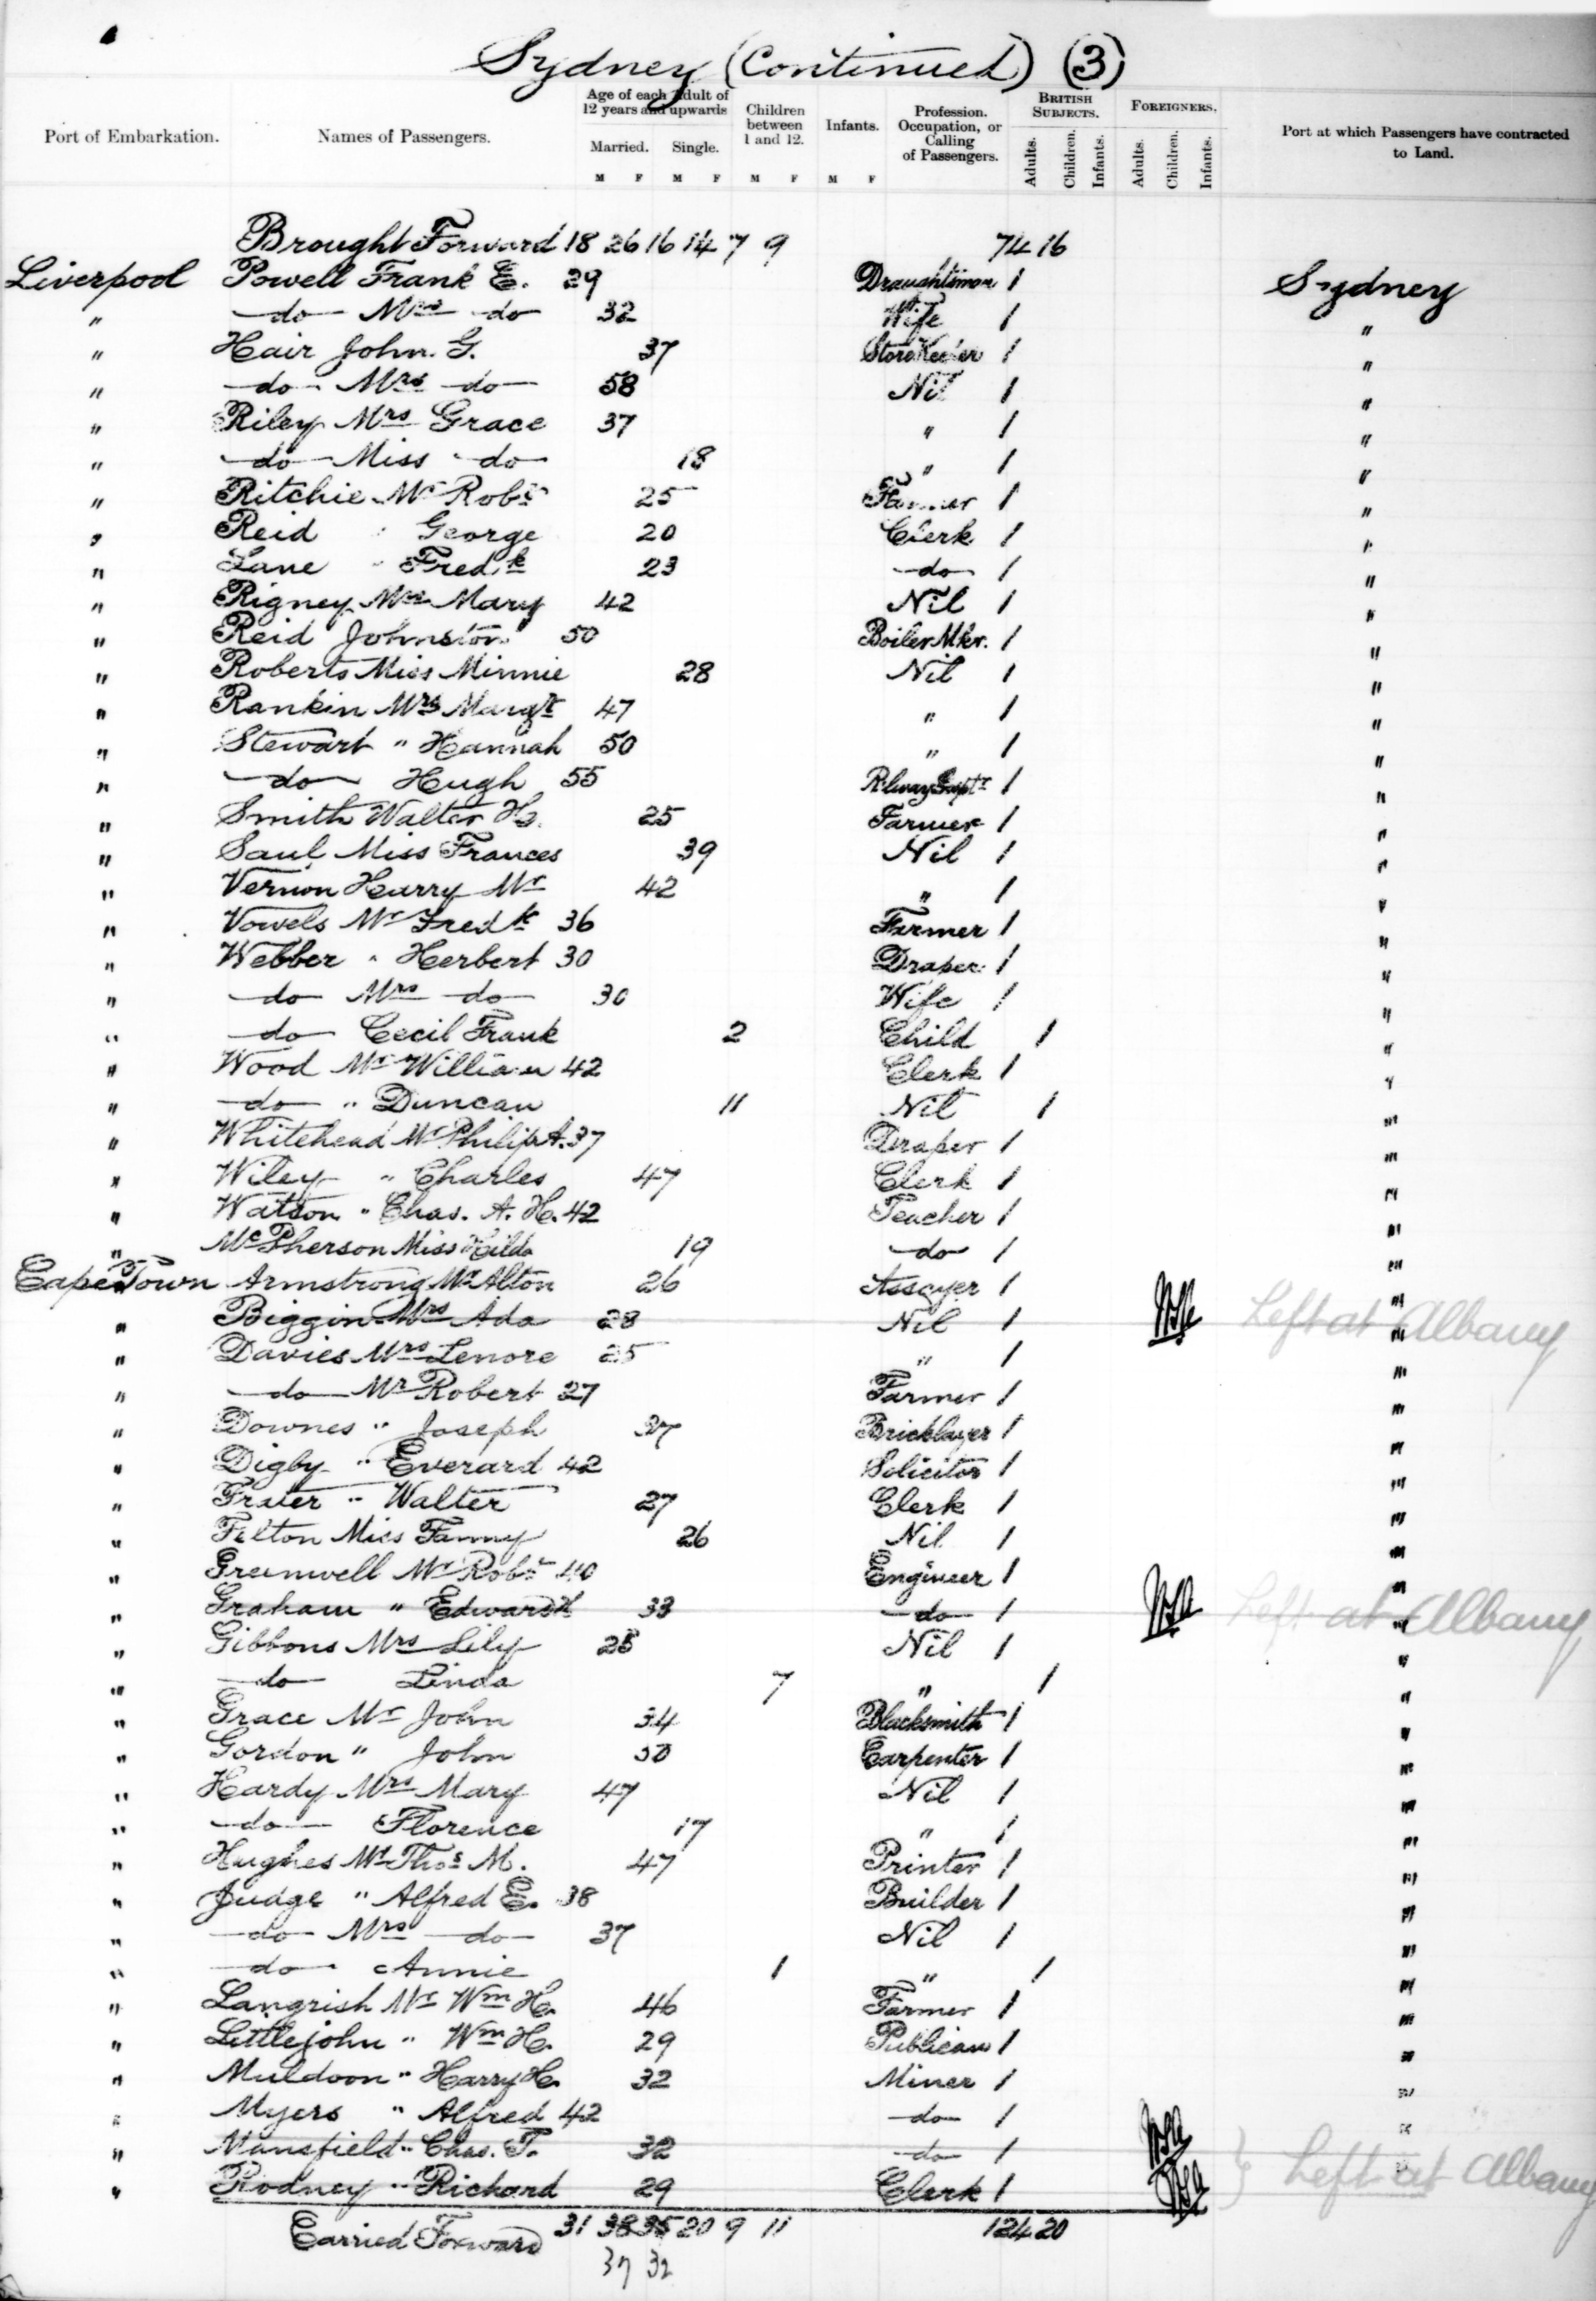 Sydney (Continued) (3)
Port of Embarkation. Names of Passengers. Age of each Adult of 12 years and upwards Married. Single. M F M F Children between 1 and 12. M F Infants. M F Profession. Occupation, or Calling of Passengers. BRITISH SUBJECTS. Adults. Children. Infants. FOREIGNERS. Adults. Children. Infants. Port at which Passengers have contracted to Land.
Brought Forward 18 26 16 14 7 9 74 16
Liverpool Powell Frank E. 29 Draughtsman 1 Sydney
" do Mrs do 32 Wife 1 "
" Hair John. G. 37 StoreKeeper 1 "
" do Mrs do 58 Nil 1 "
" Riley Mrs Grace 37 " 1 "
" do Miss do 18 " 1 "
" Ritchie Mr Robt 25 Farmer 1 "
" Reid " George 20 Clerk 1 "
" Lane " Fredk 23 do 1 "
" Rigney Mrs Mary 42 Nil 1 "
" Reid Johnston 50 Boiler Mkr. 1 "
" Roberts Miss Minnie 28 Nil 1 "
" Rankin Mrs Margt 47 " 1 "
" Stewart " Hannah 50 " 1 "
" do Hugh 55 1 "
" Smith Walter H. 25 Farmer 1 "
" Saul Miss Frances 39 Nil 1 "
" Vernon Harry Mr 42 " 1 "
" Vowels Mr Fredk 36 Farmer 1 "
" Webber " Herbert 30 Draper 1 "
" do Mrs do 30 Wife 1 "
" do Cecil Frank 2 Child 1 "
" Wood Mr William 42 Clerk 1 "
" do " Duncan 11 Nil 1 "
" Whitehead Mr Philip A. 37 Draper 1 "
" Wiley " Charles 47 Clerk 1 "
" Watson " Chas. A. H. 42 Teacher 1 "
" McPherson Miss Hilda 19 do 1 "
Cape Town Armstrong Mr Alton 26 Assayer 1 "
" Biggin Mrs Ada 28 Nil 1 Left at Albany "
" Davies Mrs Lenore 25 " 1 "
" do Mr Robert 27 Farmer 1 "
" Downes " Joseph 37 Bricklayer 1 "
" Digby " Everard 42 Solicitor 1 "
" " Walter 27 Clerk 1 "
" Felton Miss Fanny 26 Nil 1 "
" Greenwell Mr Robt 40 Engineer 1 "
" Graham " Edward 33 do 1 Left at Albany "
" Gibbons Mrs Lily 25 Nil 1 "
" do Linda 7 " 1 "
" Grace Mr John 34 Blacksmith 1 "
" Gordon " John 30 Carpenter 1 "
" Hardy Mrs Mary 47 Nil 1 "
" do Florence 17 " 1 "
" Hughes Mr Thos M. 47 Printer 1 "
" Judge " Alfred E. 38 Builder 1 "
" do Mrs do 37 Nil 1 "
" do Annie 1 " 1 "
" Langrish Mr Wm H. 46 Farmer 1 "
" Littlejohn " Wm H. 29 Publican 1 "
" Muldoon " Harry H. 32 Miner 1 "
" Myers " Alfred 42 do 1 "
" Mansfield " Chas. T. 32 do 1 "
" Rodney " Richard 29 Clerk 1 Left at Albany "
Carried Forward 31 38 35 20 9 11 124 20
37 32